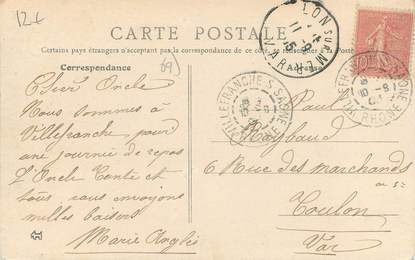 12 €
CARTE POSTALE
Certains pays étrangers n'acceptant pas la correspondance de ce côté, se renseigner à la Poste.
Correspondance
69)
Cher Oncle
Nous sommes à
Villefranche pour
une journée de repos
L'Oncle Tante et
tous, vous envoyons
milles baisers
Marie Anglès
Paul
Raybaud
6 Rue des marchands
au 5e
Toulon
Var
VILLEFRANCHE-S-SAONE
RHONE
TOULON SUR MER
VAR